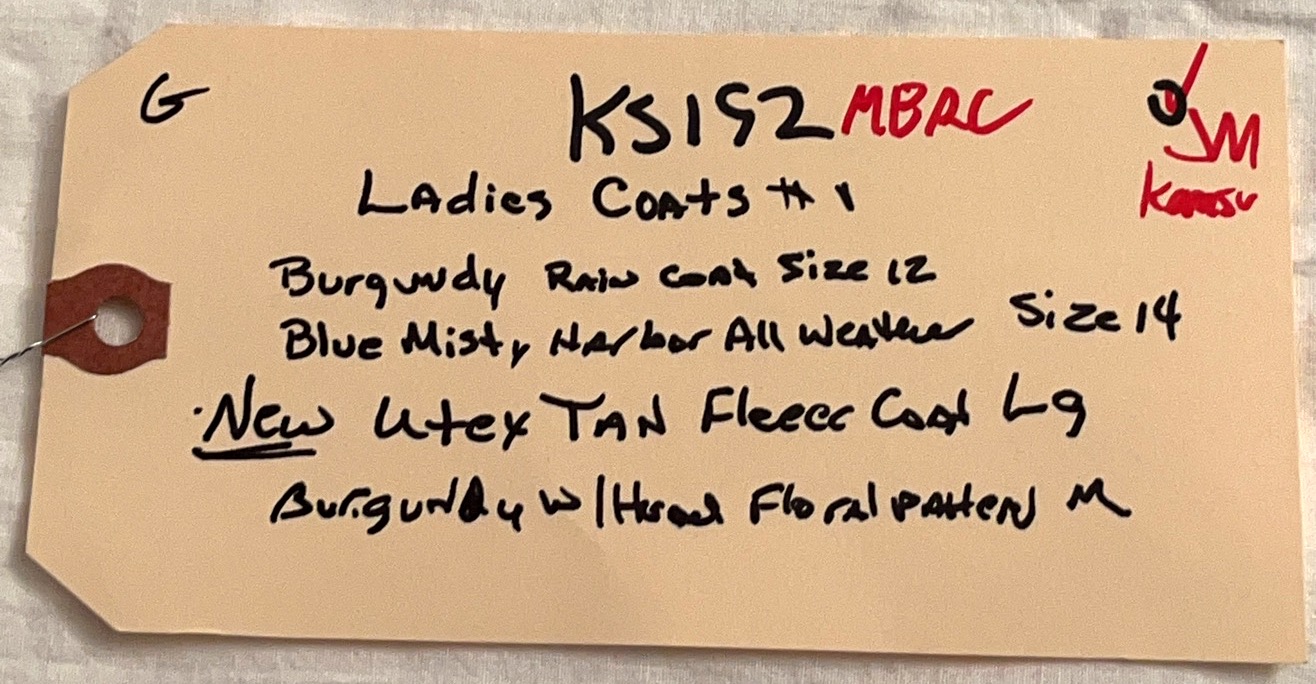 G KS192 MBRC JM
Ladies Coats # 1
Burgundy Rain Coat Size 12
Blue Misty Harbor All Weather Size 14
New Utex Tan Fleece Coat Lg
Burgundy w/ Floral Pattern M